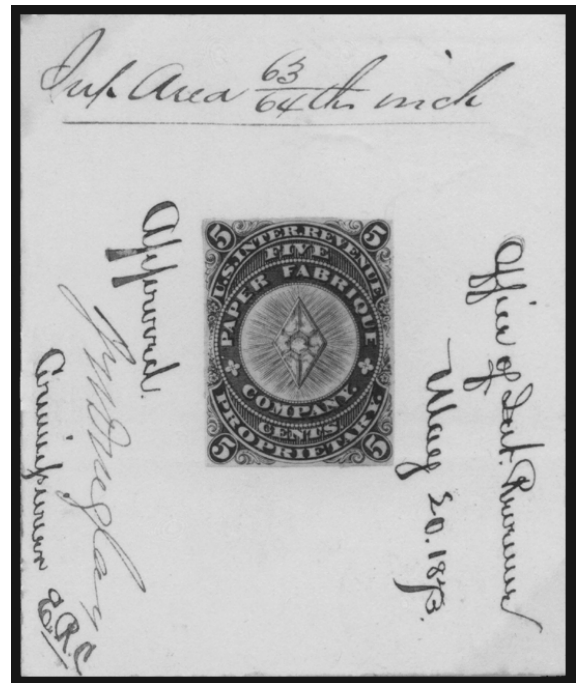 Sup. Area 63/64ths inch
Approved.
JW Douglass
Commissioner
E.R.C
5 5
U.S. INTER. REVENUE
FIVE
PAPER FABRIQUE
COMPANY.
CENTS
PROPRIETARY.
5 5
Office of Int. Revenue
May 20. 1873.